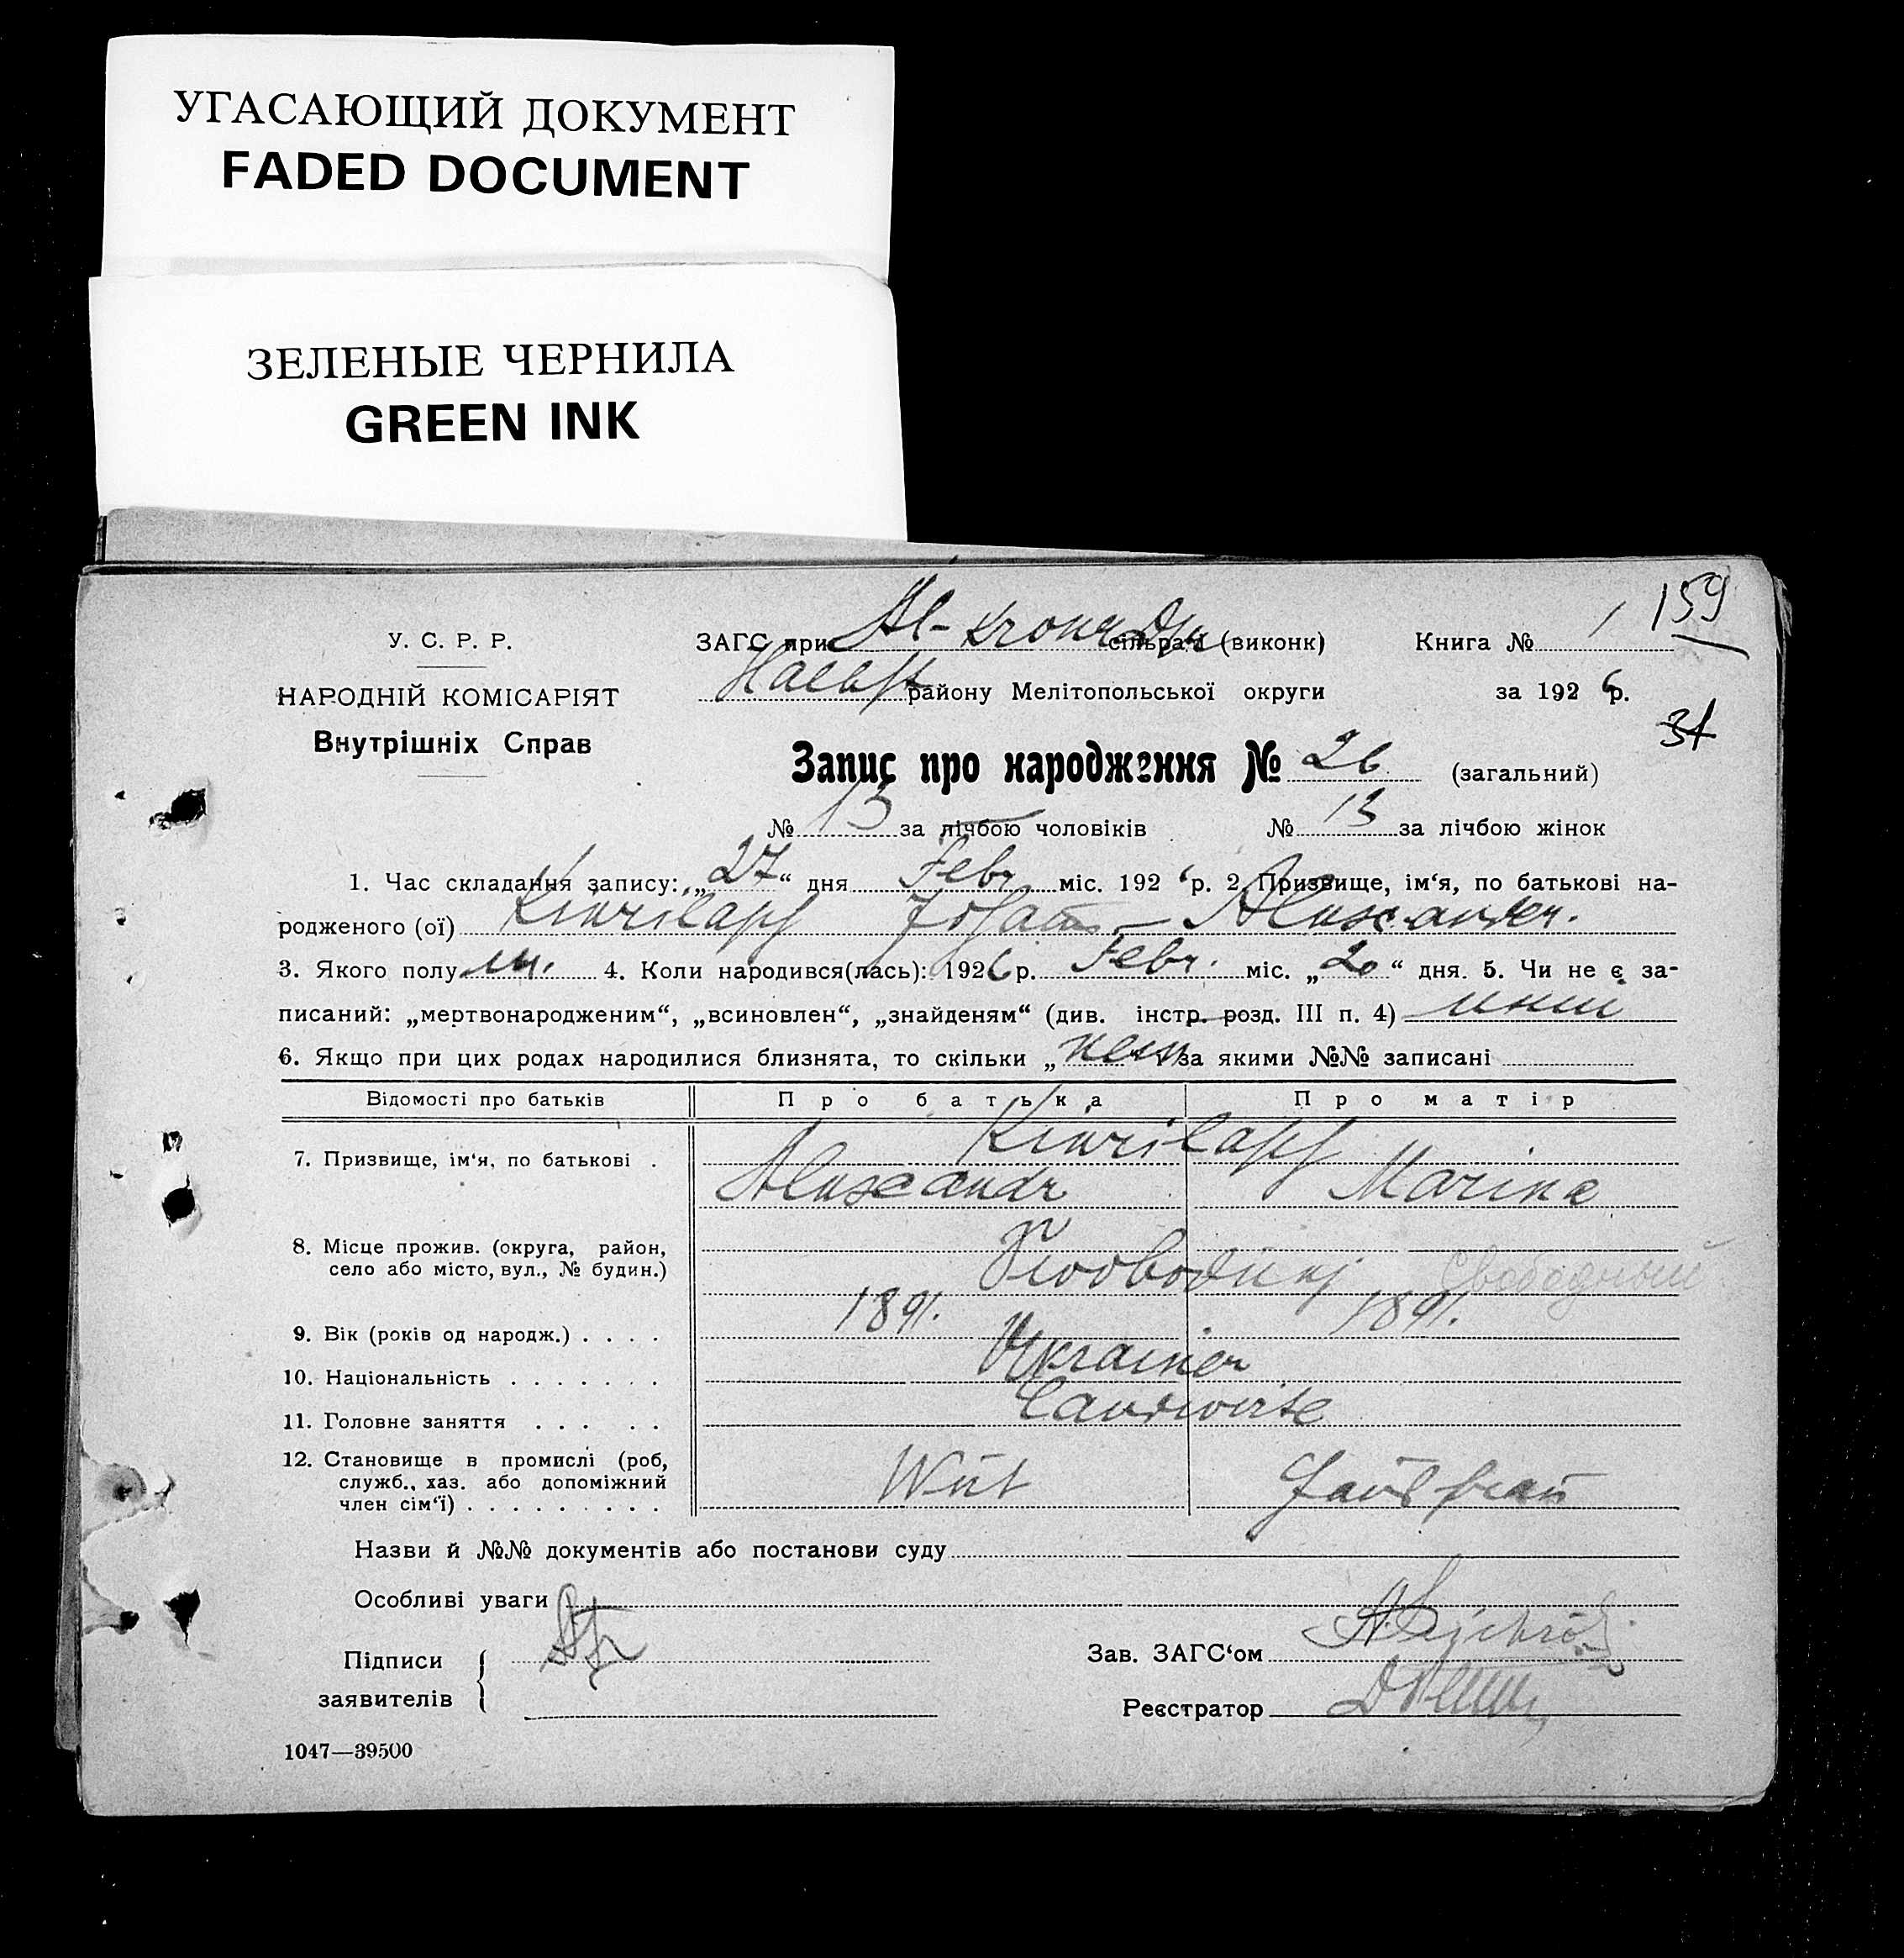 УГАСАЮЩИЙ ДОКУМЕНТ
FADED DOCUMENT
ЗЕЛЕНЫЕ ЧЕРНИЛА
GREEN INK
159
У. С. Р. Р.
ЗАГС при сільраді (виконк) Книга № 1
НАРОДНІЙ КОМІСАРІЯТ
Внутрішніх Справ
Halbst району Мелітопольської округи за 1926 р.
Запис про народження № 26 (загальний)
№ 13 за лічбою чоловіків № 13 за лічбою жінок
1. Час складання запису: „27“ дня Febr міс. 1926 р. 2. Призвище, ім‘я, по батькові на-
родженого (ої) Alexander.
3. Якого полу м. 4. Коли народився(лась): 1926 р. Febr. міс. „20“ дня. 5. Чи не є за-
писаний: „мертвонародженим“, „всиновлен“, „знайденям“ (див. інстр. розд. III п. 4)
6. Якщо при цих родах народилися близнята, то скільки „ за якими №№ записані
Відомості про батьків Про батька Про матір
7. Призвище, ім‘я, по батькові .
Alexandr Marina
8. Місце прожив. (округа, район,
село або місто, вул., № будин.) Swobodnyj Свободный
9. Вік (років од народж.) . . . . 1891. 1891.
10. Національність . . . . . . . Ukrainer
11. Головне заняття . . . . . Landwirte
12. Становище в промислі (роб,
служб., хаз. або допоміжний
член сім‘ї) . . . . . . . . . Wirt Hausfrau
Назви й №№ документів або постанови суду
Особливі уваги
Підписи
заявителів
Зав. ЗАГС‘ом
Реєстратор
1047—39500